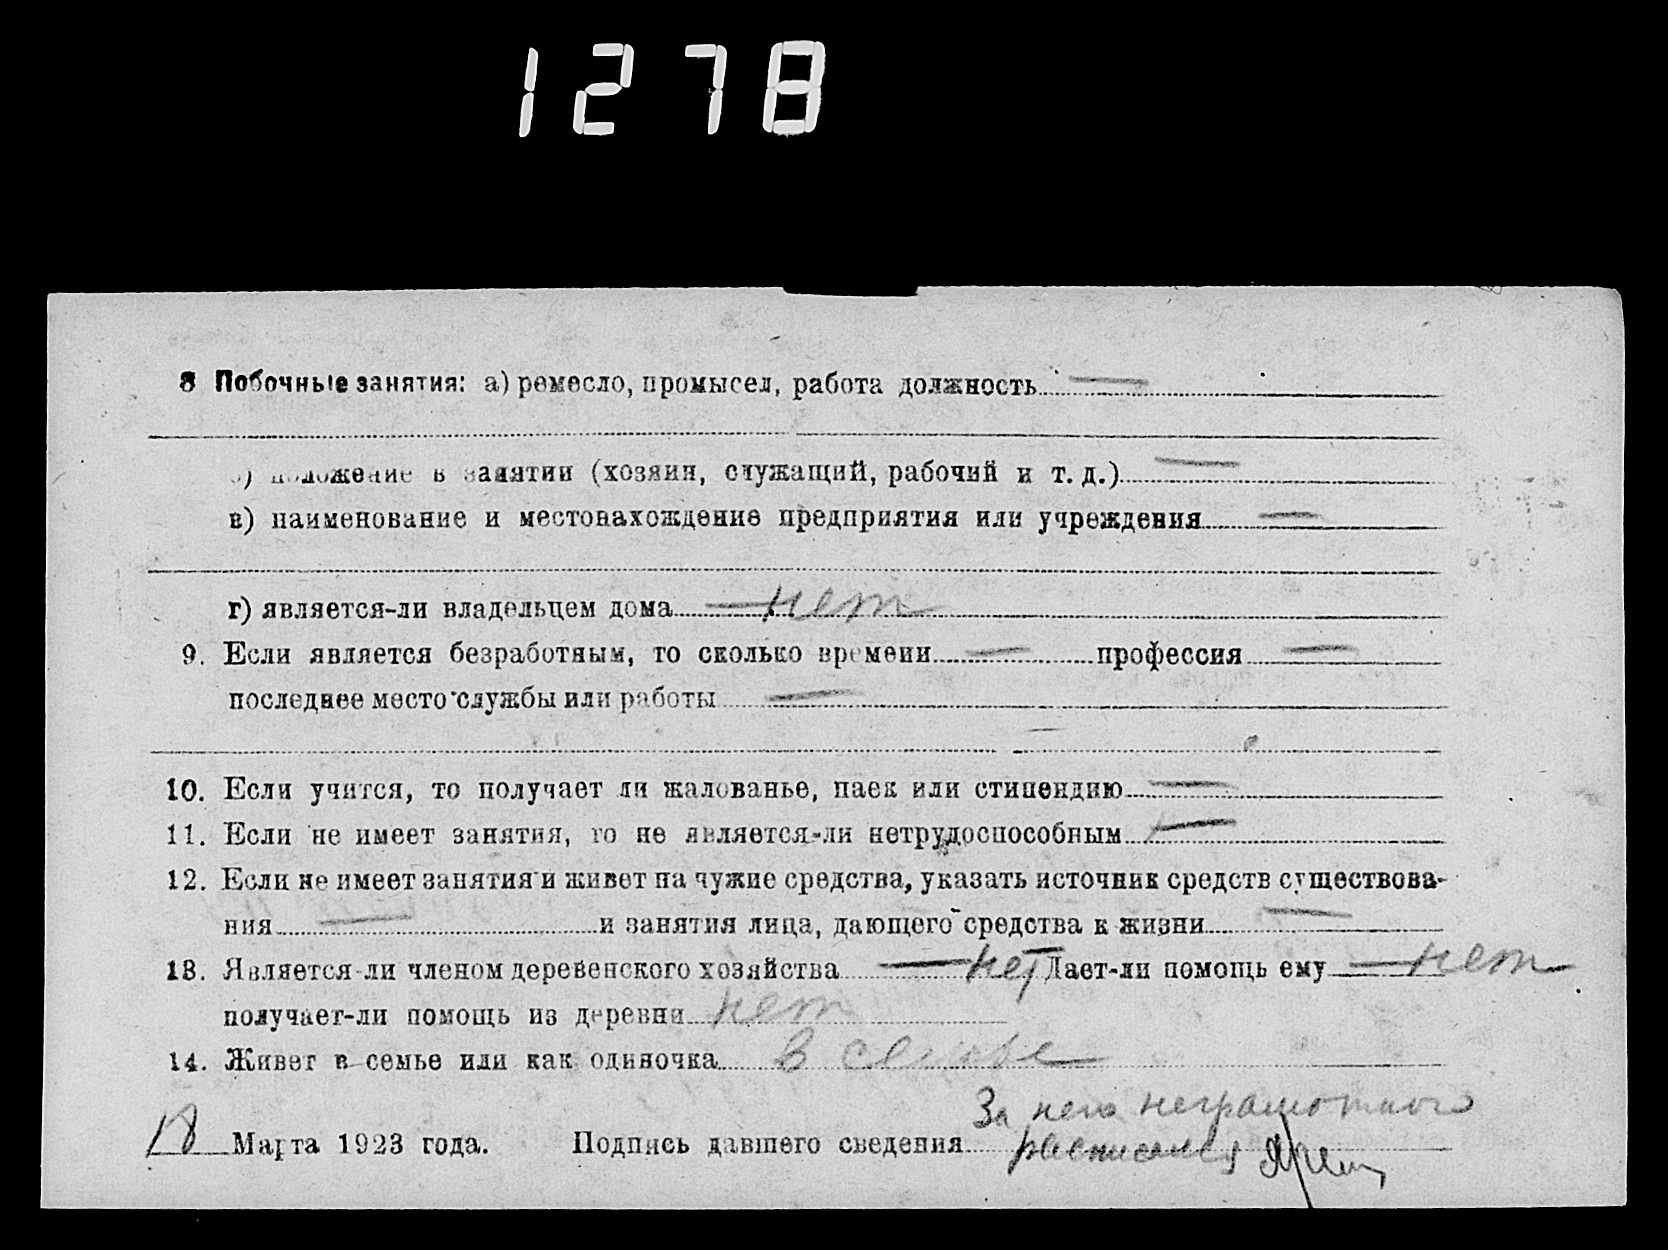 1278
8 Побочные занятия: а) ремесло, промысел, работа должность —
б) положение в занятии (хозяин, служащий, рабочий и т. д.) —
в) наименование и местонахождение предприятия или учреждения —
г) является-ли владельцем дома — нет
9. Если является безработным, то сколько времени — профессия —
последнее место службы или работы —
10. Если учится, то получает ли жалованье, паек или стипендию —
11. Если не имеет занятия, то не является-ли нетрудоспособным —
12. Если не имеет занятия и живет на чужие средства, указать источник средств существова-
ния — и занятия лица, дающего средства к жизни —
13. Является-ли членом деревенского хозяйства — нет Дает-ли помощь ему — нет
получает-ли помощь из деревни нет
14. Живет в семье или как одиночка в семье
За него неграмотного
18 Марта 1923 года. Подпись давшего сведения расписался